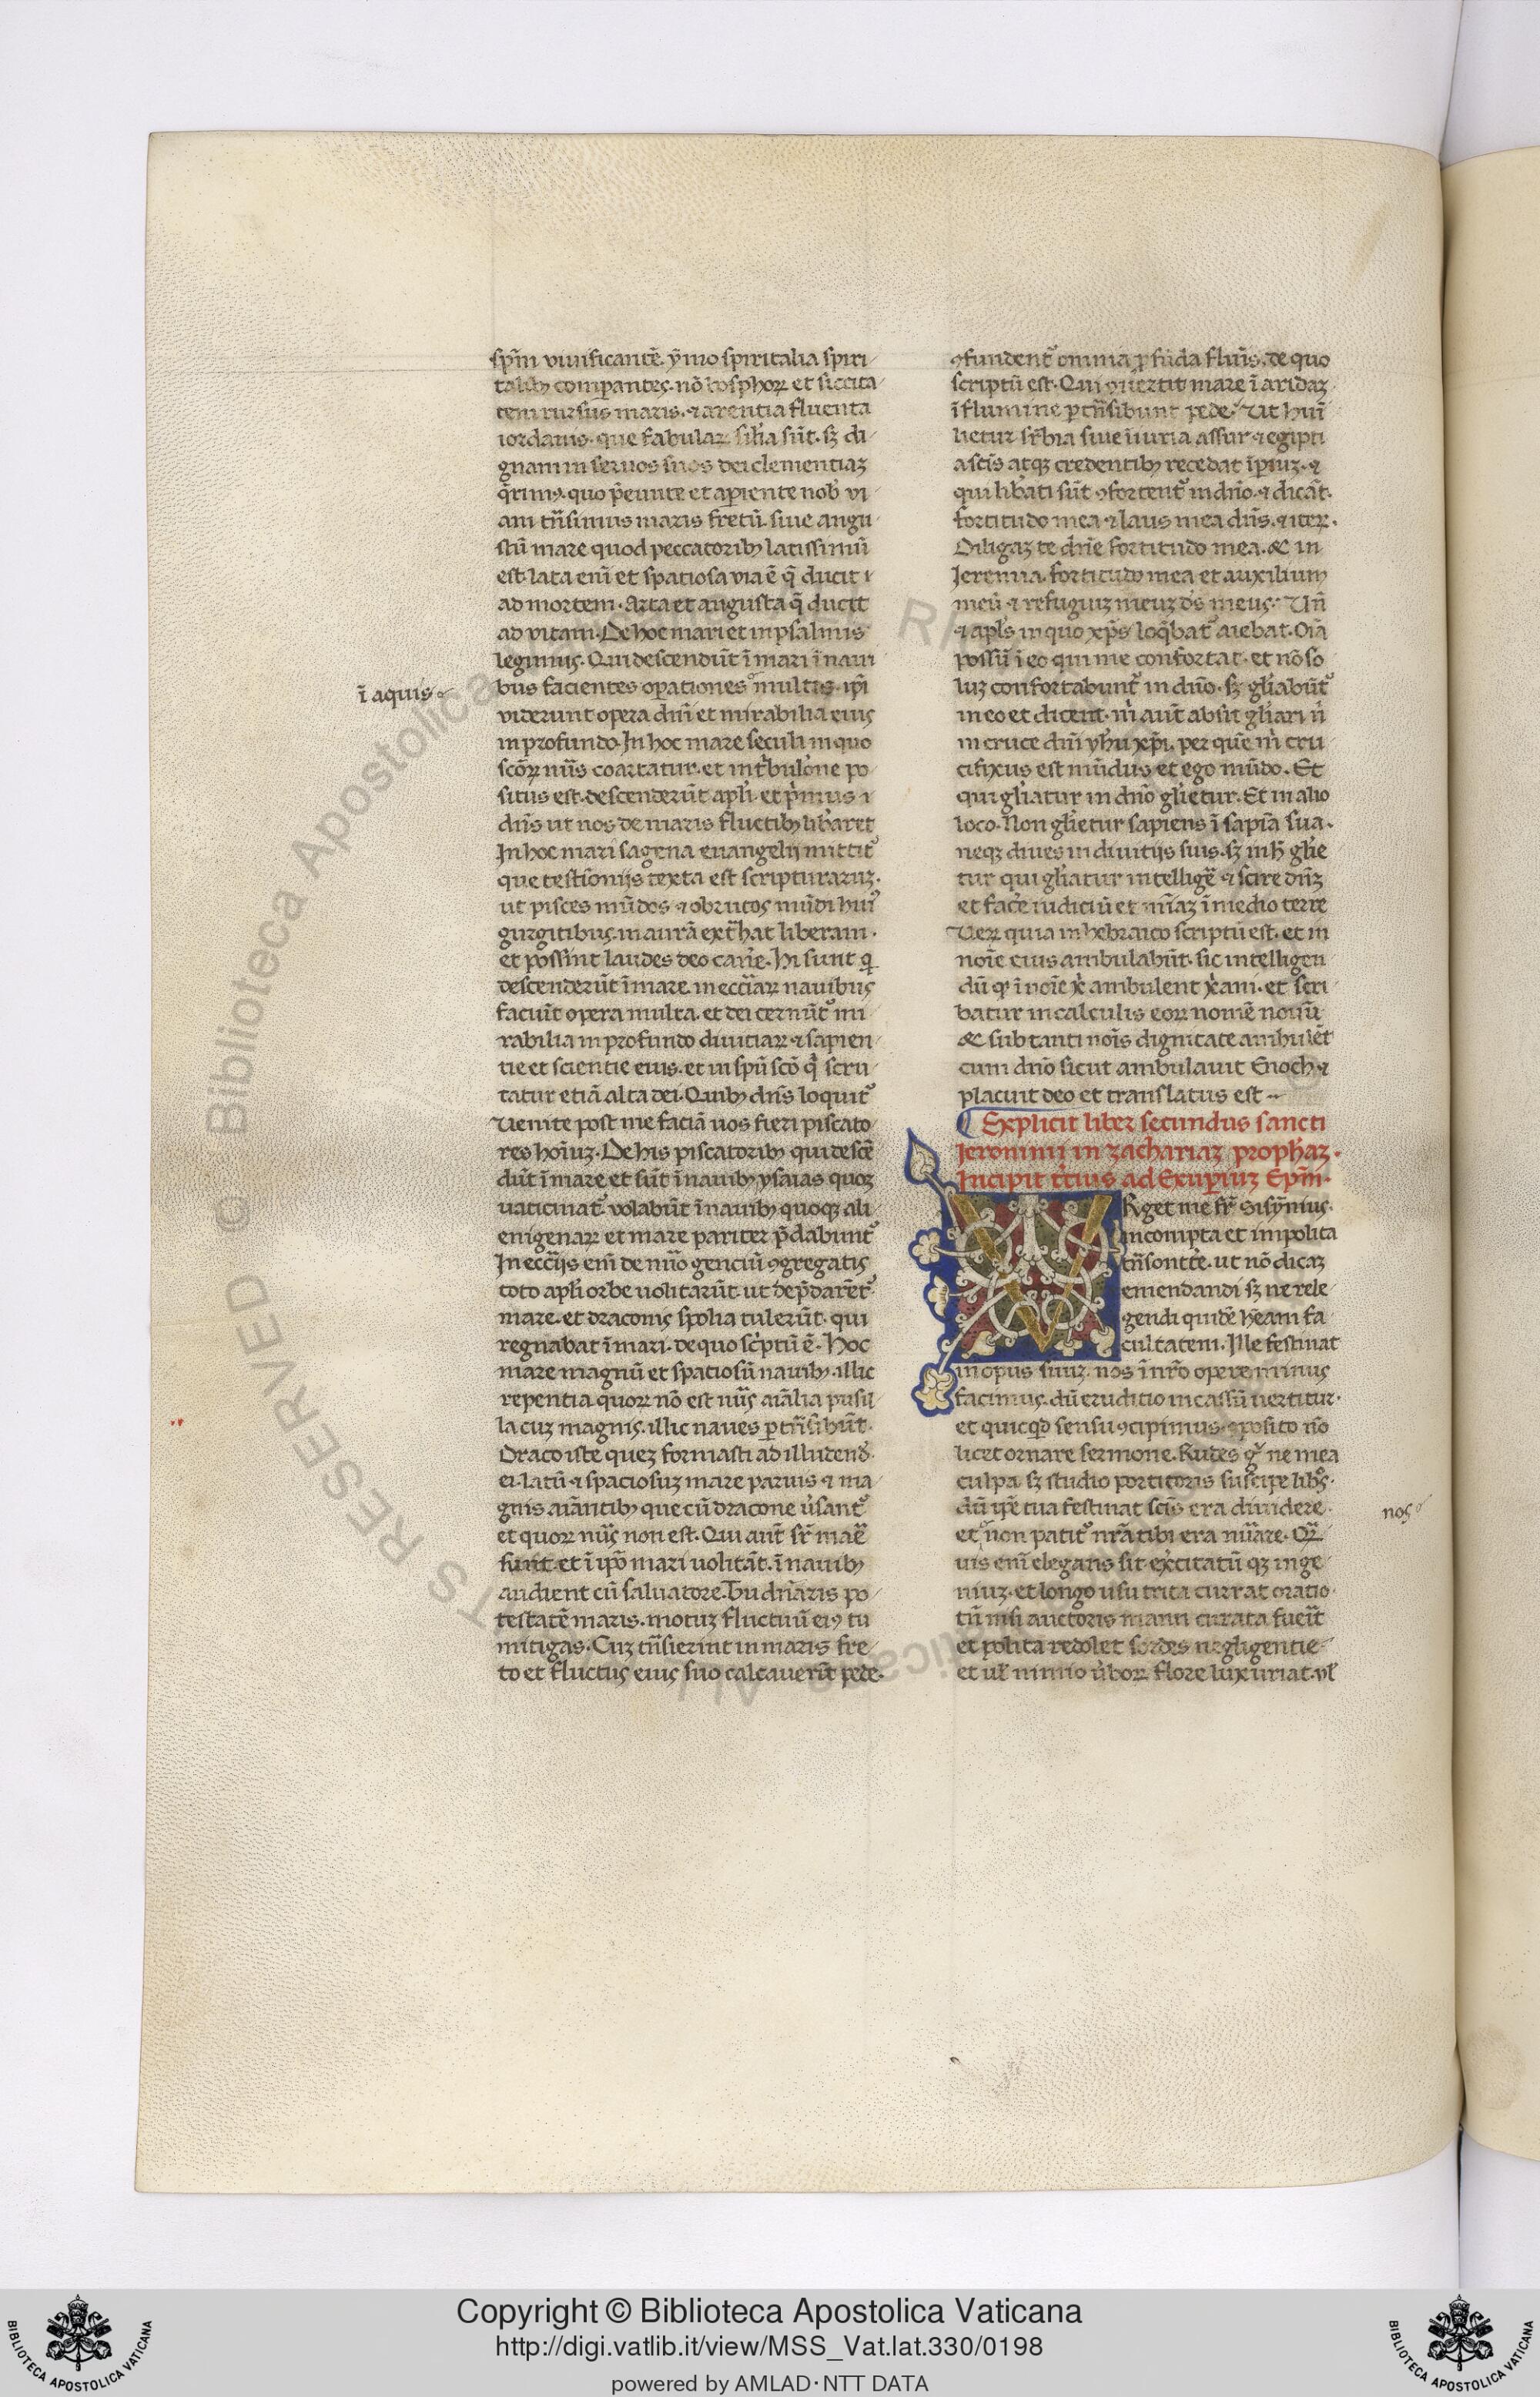 spm̄ viuificantē. ȳmo spiritalia spiri
talibꝫ comparantes. nō bosphoꝝ et siccita
tem rursus maris. ⁊ arentia fluenta
iordanis. que fabulaꝝ siĺia sūt. sꝫ di
gnam in seruos suos dei clementiaꝫ
q̄rimꝰ. quo p̄eunte et aperiente nob̄ vi
am trn̄simus maris fretū. siue angu
stū mare quod peccatoribꝫ latissimū
est. lata enī et spatiosa via ē q̄ ducit
ad mortem. Arta et angusta q̄ ducit
ad vitam. De hoc mari et in psalmis
legimus. Qui descendūt ī mari ī naui
bus facientes operationes multis. ip̄i
ī aquis
viderunt opera dn̄i et mirabilia eius
in profundo. In hoc mare seculi in quo
scōꝝ nūs coartatur. et in tⁱbulōne po
situs est. descenderūt apl̄i. et pⁱmus
dn̄s ut nos de maris fluctibꝫ lib̄aret
In hoc mari sagena euangelij mittit᷑
que testīonijs texta est scripturaruꝫ.
ut pisces mūdos ⁊ obrutos mūdi huiꝰ
gurgitibus. in aurā ext̄hat liberam.
et possint laudes deo cane᷑. Hi sunt q̄
descenderūt ī mare in eccl̄iaꝝ nauibus
faciūt opera multa. et dei cernūt᷑ mi
rabilia in profundo diuitiaꝝ ⁊ sapien
tie et scientie eius. et in spū scō qⁱ scru
tatur etiā alta dei. Quibꝫ dn̄s loquit᷑
Venite post me faciā uos fieri piscato
res hoīuꝫ. De his piscatoribꝫ qui descē
dūt ī mare et sūt ī nauibꝫ ysaias quoꝫ
uaticinat᷑. volabūt ī nauibꝫ quoqꝫ ali
enigenaꝝ et mare pariter p̄dabunt᷑
In eccl̄ijs enī de nūo genciū ꝯgregatis
toto apl̄i orbe uolitarūt. ut dep̄darēt᷑
mare. et draconis spolia tulerūt. qui
regnabat ī mari. de quo scⁱptū ē. Hoc
mare magnū et spatiosū nauibꝫ. illic
repentia quoꝝ nō est nūs aīalia pusil
la cuꝫ magnis. illic naues ꝑtrn̄sibūt.
Draco iste queꝫ formasti ad illudend̄
ei. latū ⁊ spaciosuꝫ mare paruis ⁊ ma
gnis aīantibꝫ que cū dracone ūsant᷑
et quoꝝ nūs non est. Qui aūt sr̄ mae᷑
sunt. et ī ipō mari uolitāt. ī nauibꝫ
audient cū saluatore. Tu dn̄aris po
testatē maris. motuꝫ fluctuū eiꝰ tu
mitigas. Cuꝫ trn̄sierint in maris fre
to et fluctus eius suo calcauerīt pede.
ꝯfundent᷑ omnia ꝓfūda flūis. de quo
scriptū est. Qui ꝯuertit mare ī aridaꝫ
ī flumine ꝑtrn̄sibunt pede. Ut huī
lietur sꝑbia siue iniuria assur ⁊ egipti
a scīs atqꝫ credentibꝫ recedat īpiuꝫ. ⁊
qui lib̄ati sūt ꝯfortent᷑ in dn̄o. ⁊ dicāt.
fortitudo mea ⁊ laus mea dn̄s. ⁊ iteꝝ.
Diligaꝫ te dn̄e fortitudo mea. & in
Ieremia. fortitudo mea et auxilium
meū ⁊ refugiuꝫ meuꝫ dꝭs meus. Un̄
⁊ apl̄s in quo xp̄s loq̄bat᷑ aiebat. Oīa
possū ī eo qui me confortat. et nō so
luꝫ confortabunt᷑ in dn̄o. sꝫ gl̄iabūt᷑
in eo et dicent. mⁱ aūt absit gl̄iari nⁱ
in cruce dn̄i yh̄u xp̄i. per quē mⁱ cru
cifixus est mūdus et ego mūdo. Et
qui gl̄iatur in dn̄o gl̄ietur. Et in alio
loco. Non gl̄ietur sapiens ī sapīa sua.
neqꝫ diues in diuitijs suis. sꝫ in h̄ gl̄ie
tur qui gl̄iatur intellige᷑ ⁊ scire dn̄ꝫ
et face᷑ iudiciū et mīaꝫ ī medio terre
Veꝝ quia in hebraico scriptū est. et in
noīe eius ambulabūt. sic intelligen
dū ꝙ ī noīe xⁱ ambulent xⁱani. et scri
batur in calculis eoꝝ nomē nouū
& sub tanti noīs dignitate ambulēt
cum dn̄o sicut ambulauit Enoch ⁊
placuit deo et translatus est
Explicit liber secundus sancti
Ieronimi in zachariaꝫ proph̄aꝫ.
Incipit tⁱcius ad Exuperiuꝫ Ep̄m.
VRget me fr̄ Sisȳnius.
incompta et impolita
trn̄sontⁱe. ut nō dicaꝫ
emendandi sꝫ ne rele
gendi quidē hēam fa
cultatem. Ille festinat
in opus suuꝫ. nos ī nr̄o opere minus
facimus. dū eruditio in cassū uertitur.
et quicqd̄ sensu ꝯcipimus. exposito nō
licet ornare sermone. Rudes gͦ ne mea
culpa sꝫ studio portitoris suscipe libͦs.
dū ip̄e tua festinat scīs era diuidere.
et non patit᷑ nr̄a tibi era nūare. Qꝝ
nos
uis enī elegans sit ⁊ excitatū qꝫ inge
niuꝫ. et longo usu trita currat oratio.
tn̄ nisi auctoris manu curata fuerīt
et polita redolet sordes negligentie
et ul̄ nimio ūboꝝ flore luxuriat. ul̄
Copyright © Biblioteca Apostolica Vaticana
http://digi.vatlib.it/view/MSS_Vat.lat.330/0198
powered by AMLAD·NTT DATA
BIBLIOTECA APOSTOLICA VATICANA
BIBLIOTECA APOSTOLICA VATICANA